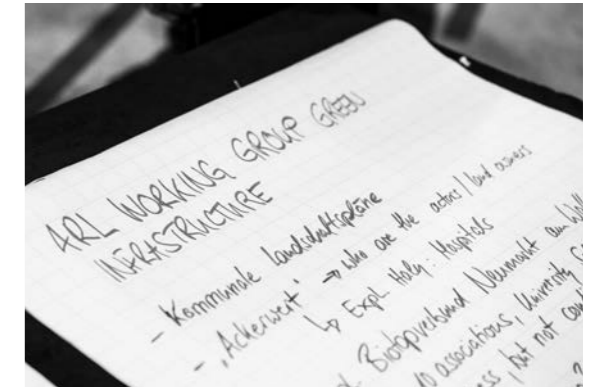 ARL WORKING GROUP GREEN
INFRASTRUCTURE
- Kommunale Landschaftspläne
- "Ackerwert" → who are the actors / land owners
↳ Expl. Italy: Hospitals
Biotopverbund Neumarkt am
10 associations, University
but not